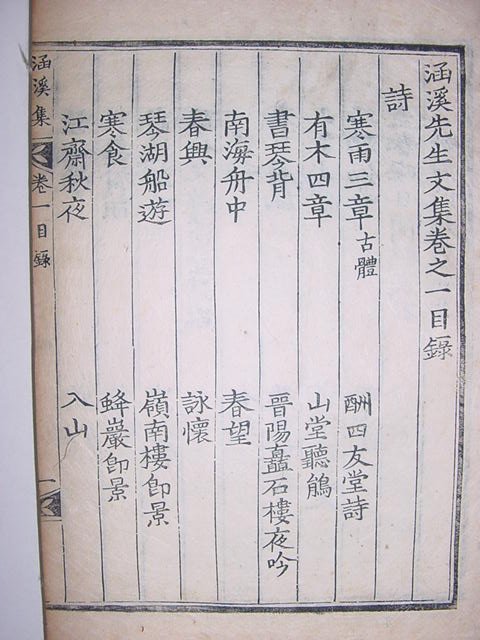 涵溪先生文集卷之一目錄
詩
寒雨三章古體
酬四友堂詩
有木四章
山堂聽鵑
書琴背
晉陽矗石樓夜吟
南海舟中
春望
春興
詠懷
琴湖船遊
嶺南樓卽景
寒食
蜂巖卽景
江齋秋夜
入山
涵溪集
卷一目錄
一